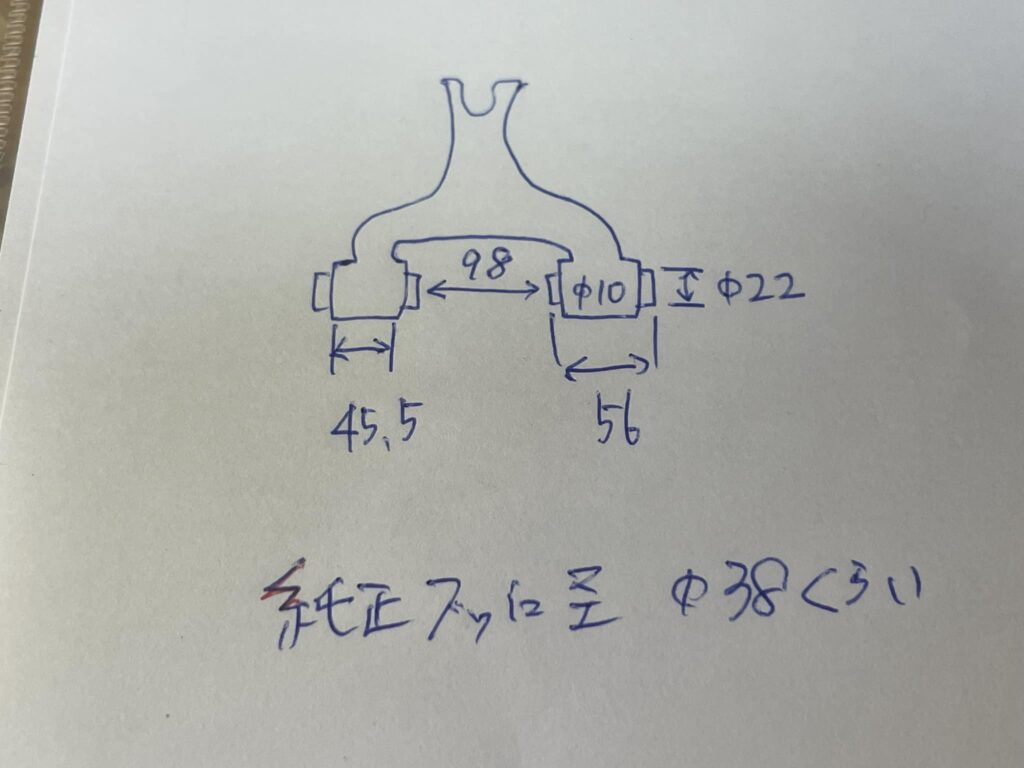 98
Φ10
Φ22
45.5
56
純正 Φ38くらい